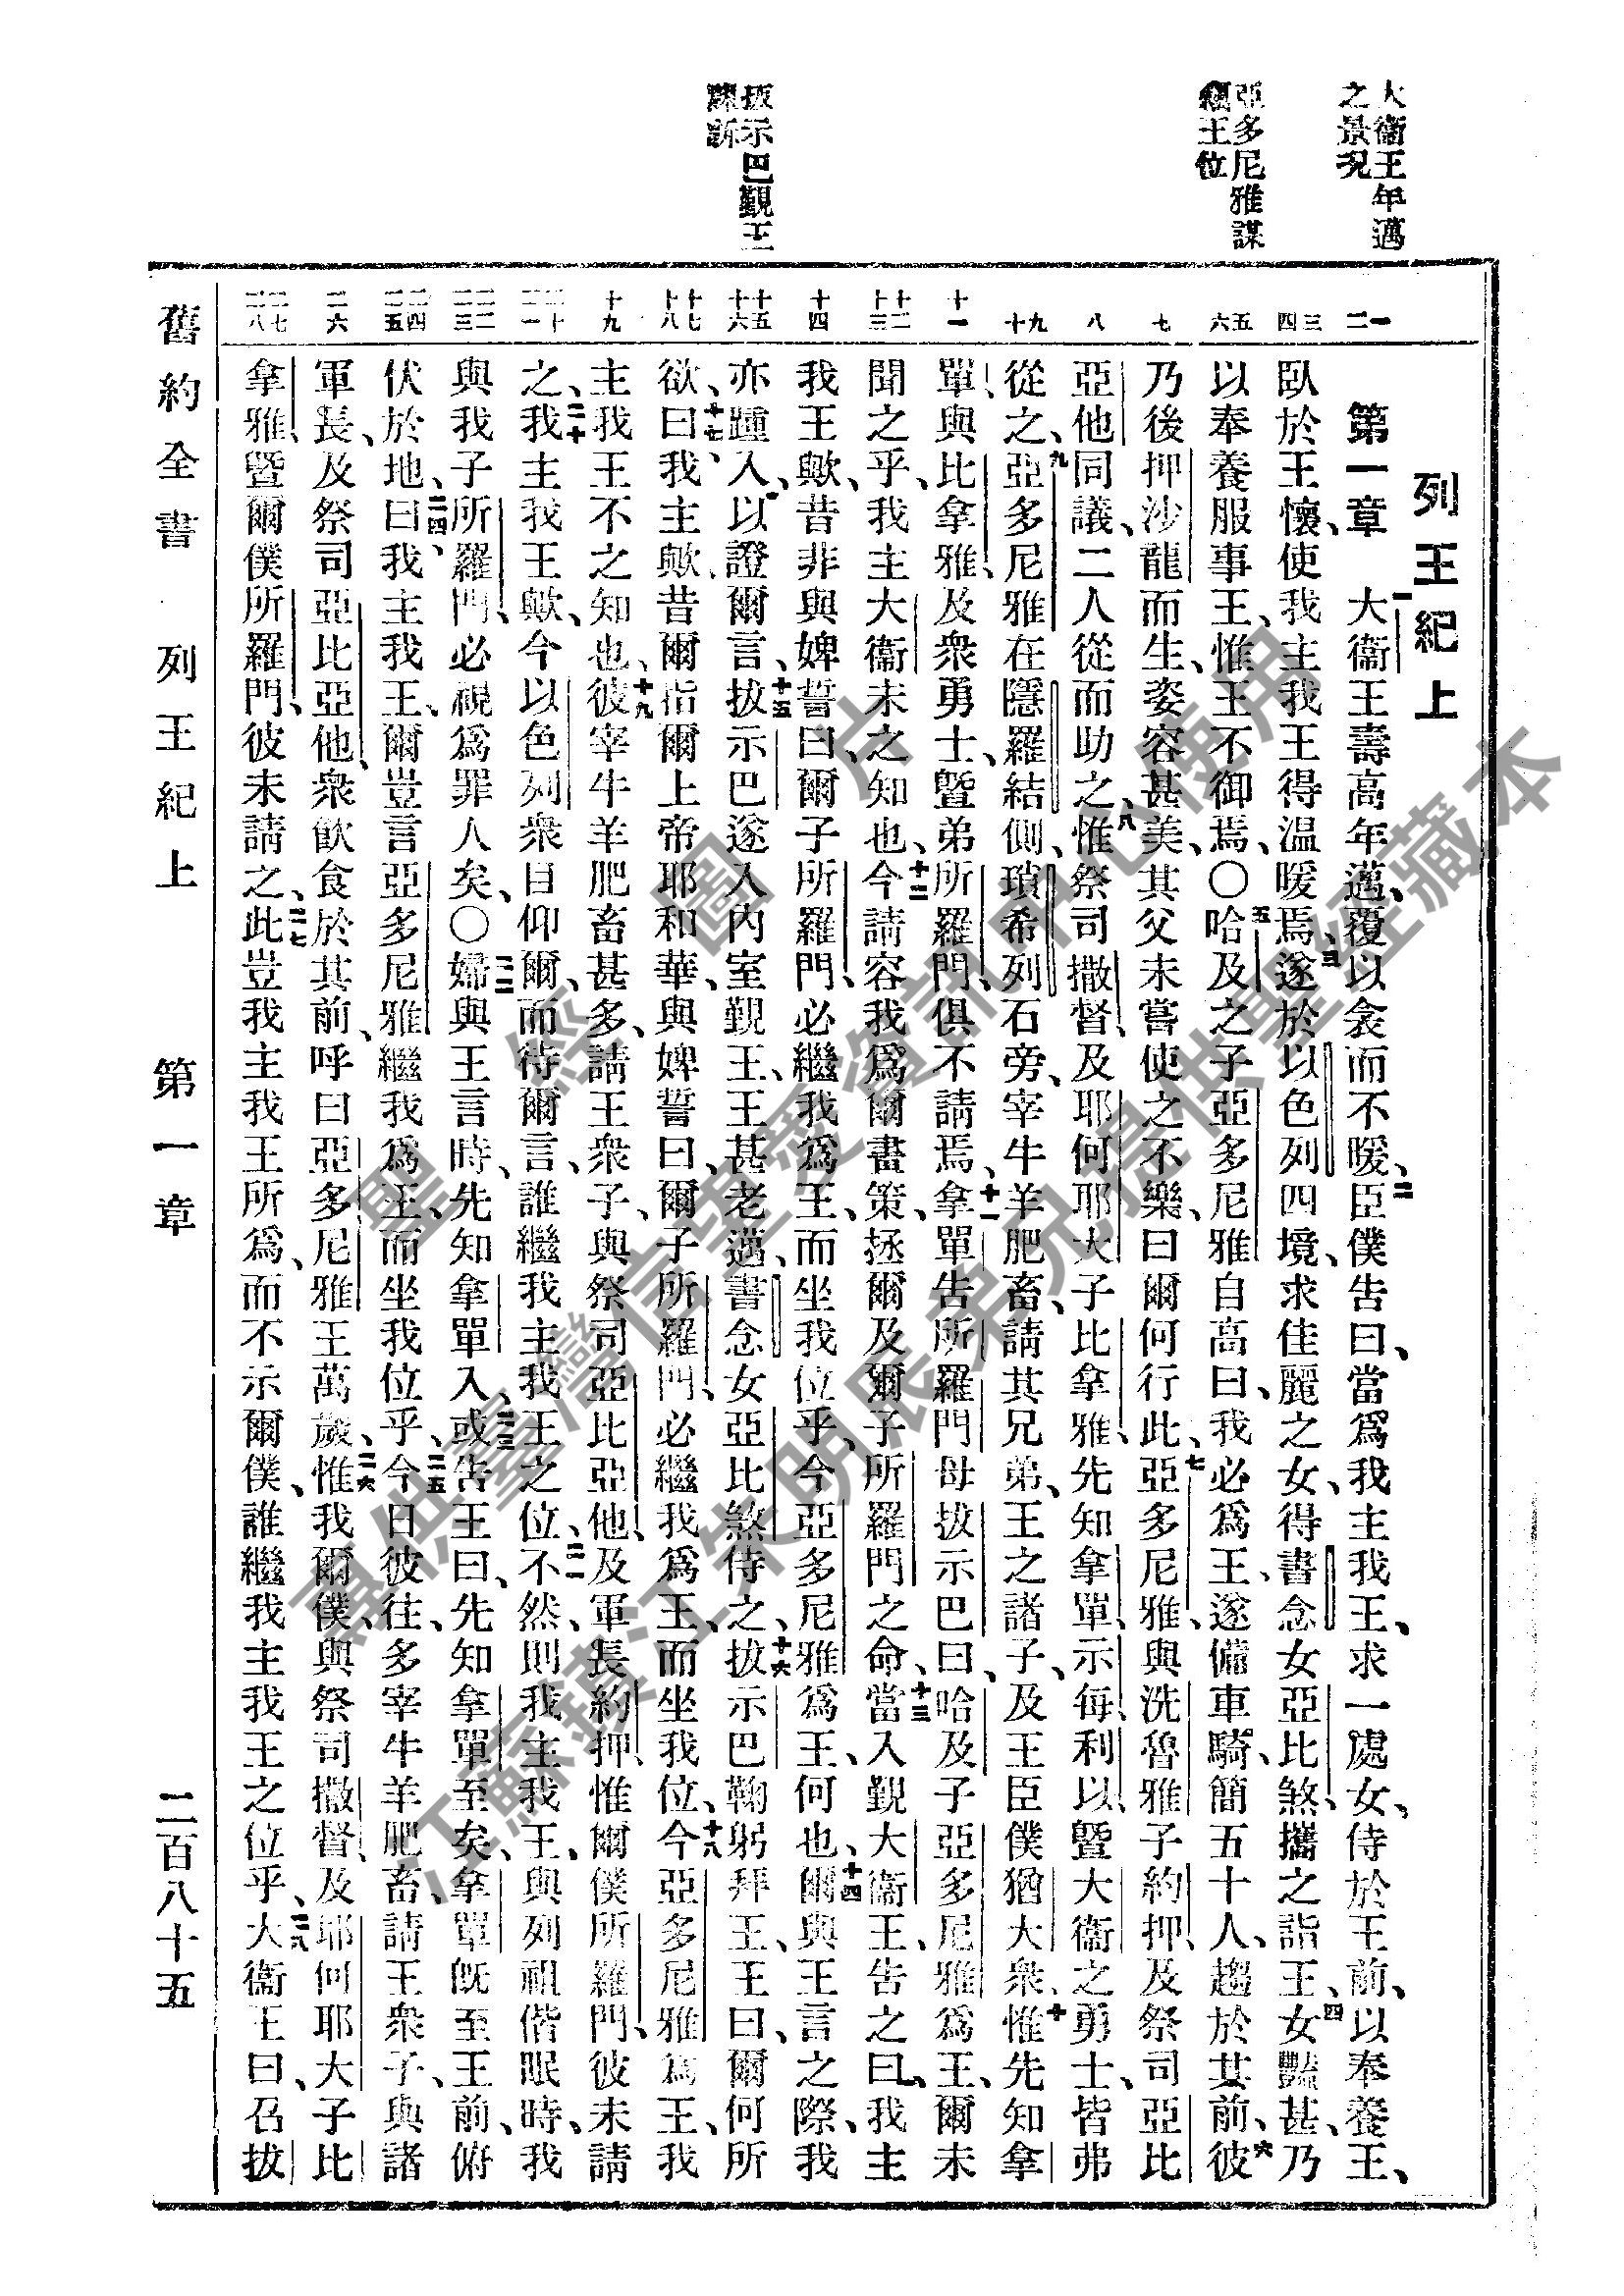 大衞王年邁
之景况
亞多尼雅謀
王位
拔示巴覲王
陳訴
一 二
三 四
五 六
七
八
九 十
十一
十二 十三
十四
十五 十六
十七 十八
十九
二十 二一
二二 二三
二四 二五
二六
二七 二八
列王紀上
第一章 一大衞王壽高年邁、覆以衾而不暖、二臣僕告曰、當爲我主我王、求一處女、侍於王前、以奉養王、
臥於王懷、使我主我王得溫暖焉、三遂於以色列四境、求佳麗之女、得書念女亞比煞、攜之詣王、四女豔甚、乃
以奉養服事王、惟王不御焉、○五哈及之子亞多尼雅自高曰、我必爲王、遂備車騎、簡五十人、趨於其前、六彼
乃後押沙龍而生、姿容甚美、其父未嘗使之不樂、曰爾何行此、七亞多尼雅、與洗魯雅子約押、及祭司亞比
亞他同議、二人從而助之、八惟祭司撒督、及耶何耶大子比拿雅、先知拿單、示每、利以、曁大衞之勇士、皆弗
從之、九亞多尼雅在隱羅結側、瑣希列石旁、宰牛羊肥畜、請其兄弟、王之諸子、及王臣僕猶大衆、十惟先知拿
單、與比拿雅、及衆勇士、曁弟所羅門、俱不請焉、十一拿單告所羅門母拔示巴曰、哈及子亞多尼雅爲王、爾未
聞之乎、我主大衞未之知也、十二今請容我爲爾畫策、拯爾及爾子所羅門之命、十三當入覲大衞王、告之曰、我主
我王歟、昔非與婢誓曰、爾子所羅門、必繼我爲王、而坐我位乎、今亞多尼雅爲王、何也、十四爾與王言之際、我
亦踵入、以證爾言、十五拔示巴遂入內室覲王、王甚老邁、書念女亞比煞侍之、十六拔示巴鞠躬拜王、王曰、爾何所
欲、十七曰、我主歟、昔爾指爾上帝耶和華、與婢誓曰、爾子所羅門、必繼我爲王、而坐我位、十八今亞多尼雅爲王、我
主我王不之知也、十九彼宰牛羊肥畜甚多、請王衆子、與祭司亞比亞他、及軍長約押、惟爾僕所羅門、彼未請
之、二十我主我王歟、今以色列衆目仰爾、而待爾言、誰繼我主我王之位、二一不然、則我主我王、與列祖偕眠時、我
與我子所羅門、必視爲罪人矣、○二二婦與王言時、先知拿單入、二三或告王曰、先知拿單至矣、拿單旣至王前、俯
伏於地、二四曰、我主我王、爾豈言亞多尼雅繼我爲王、而坐我位乎、二五今日彼往、多宰牛羊肥畜、請王衆子、與諸
軍長、及祭司亞比亞他、衆飲食於其前、呼曰亞多尼雅王萬歲、二六惟我爾僕、與祭司撒督、及耶何耶大子比
拿雅、曁爾僕所羅門、彼未請之、二七此豈我主我王所爲、而不示爾僕、誰繼我主我王之位乎、二八大衞王曰、召拔
舊約全書 列王紀上 第一章 二百八十五
聖經圖片
專供臺灣信望愛資訊中心使用
江蘇鎮江朱明辰弟兄提供聖經藏本